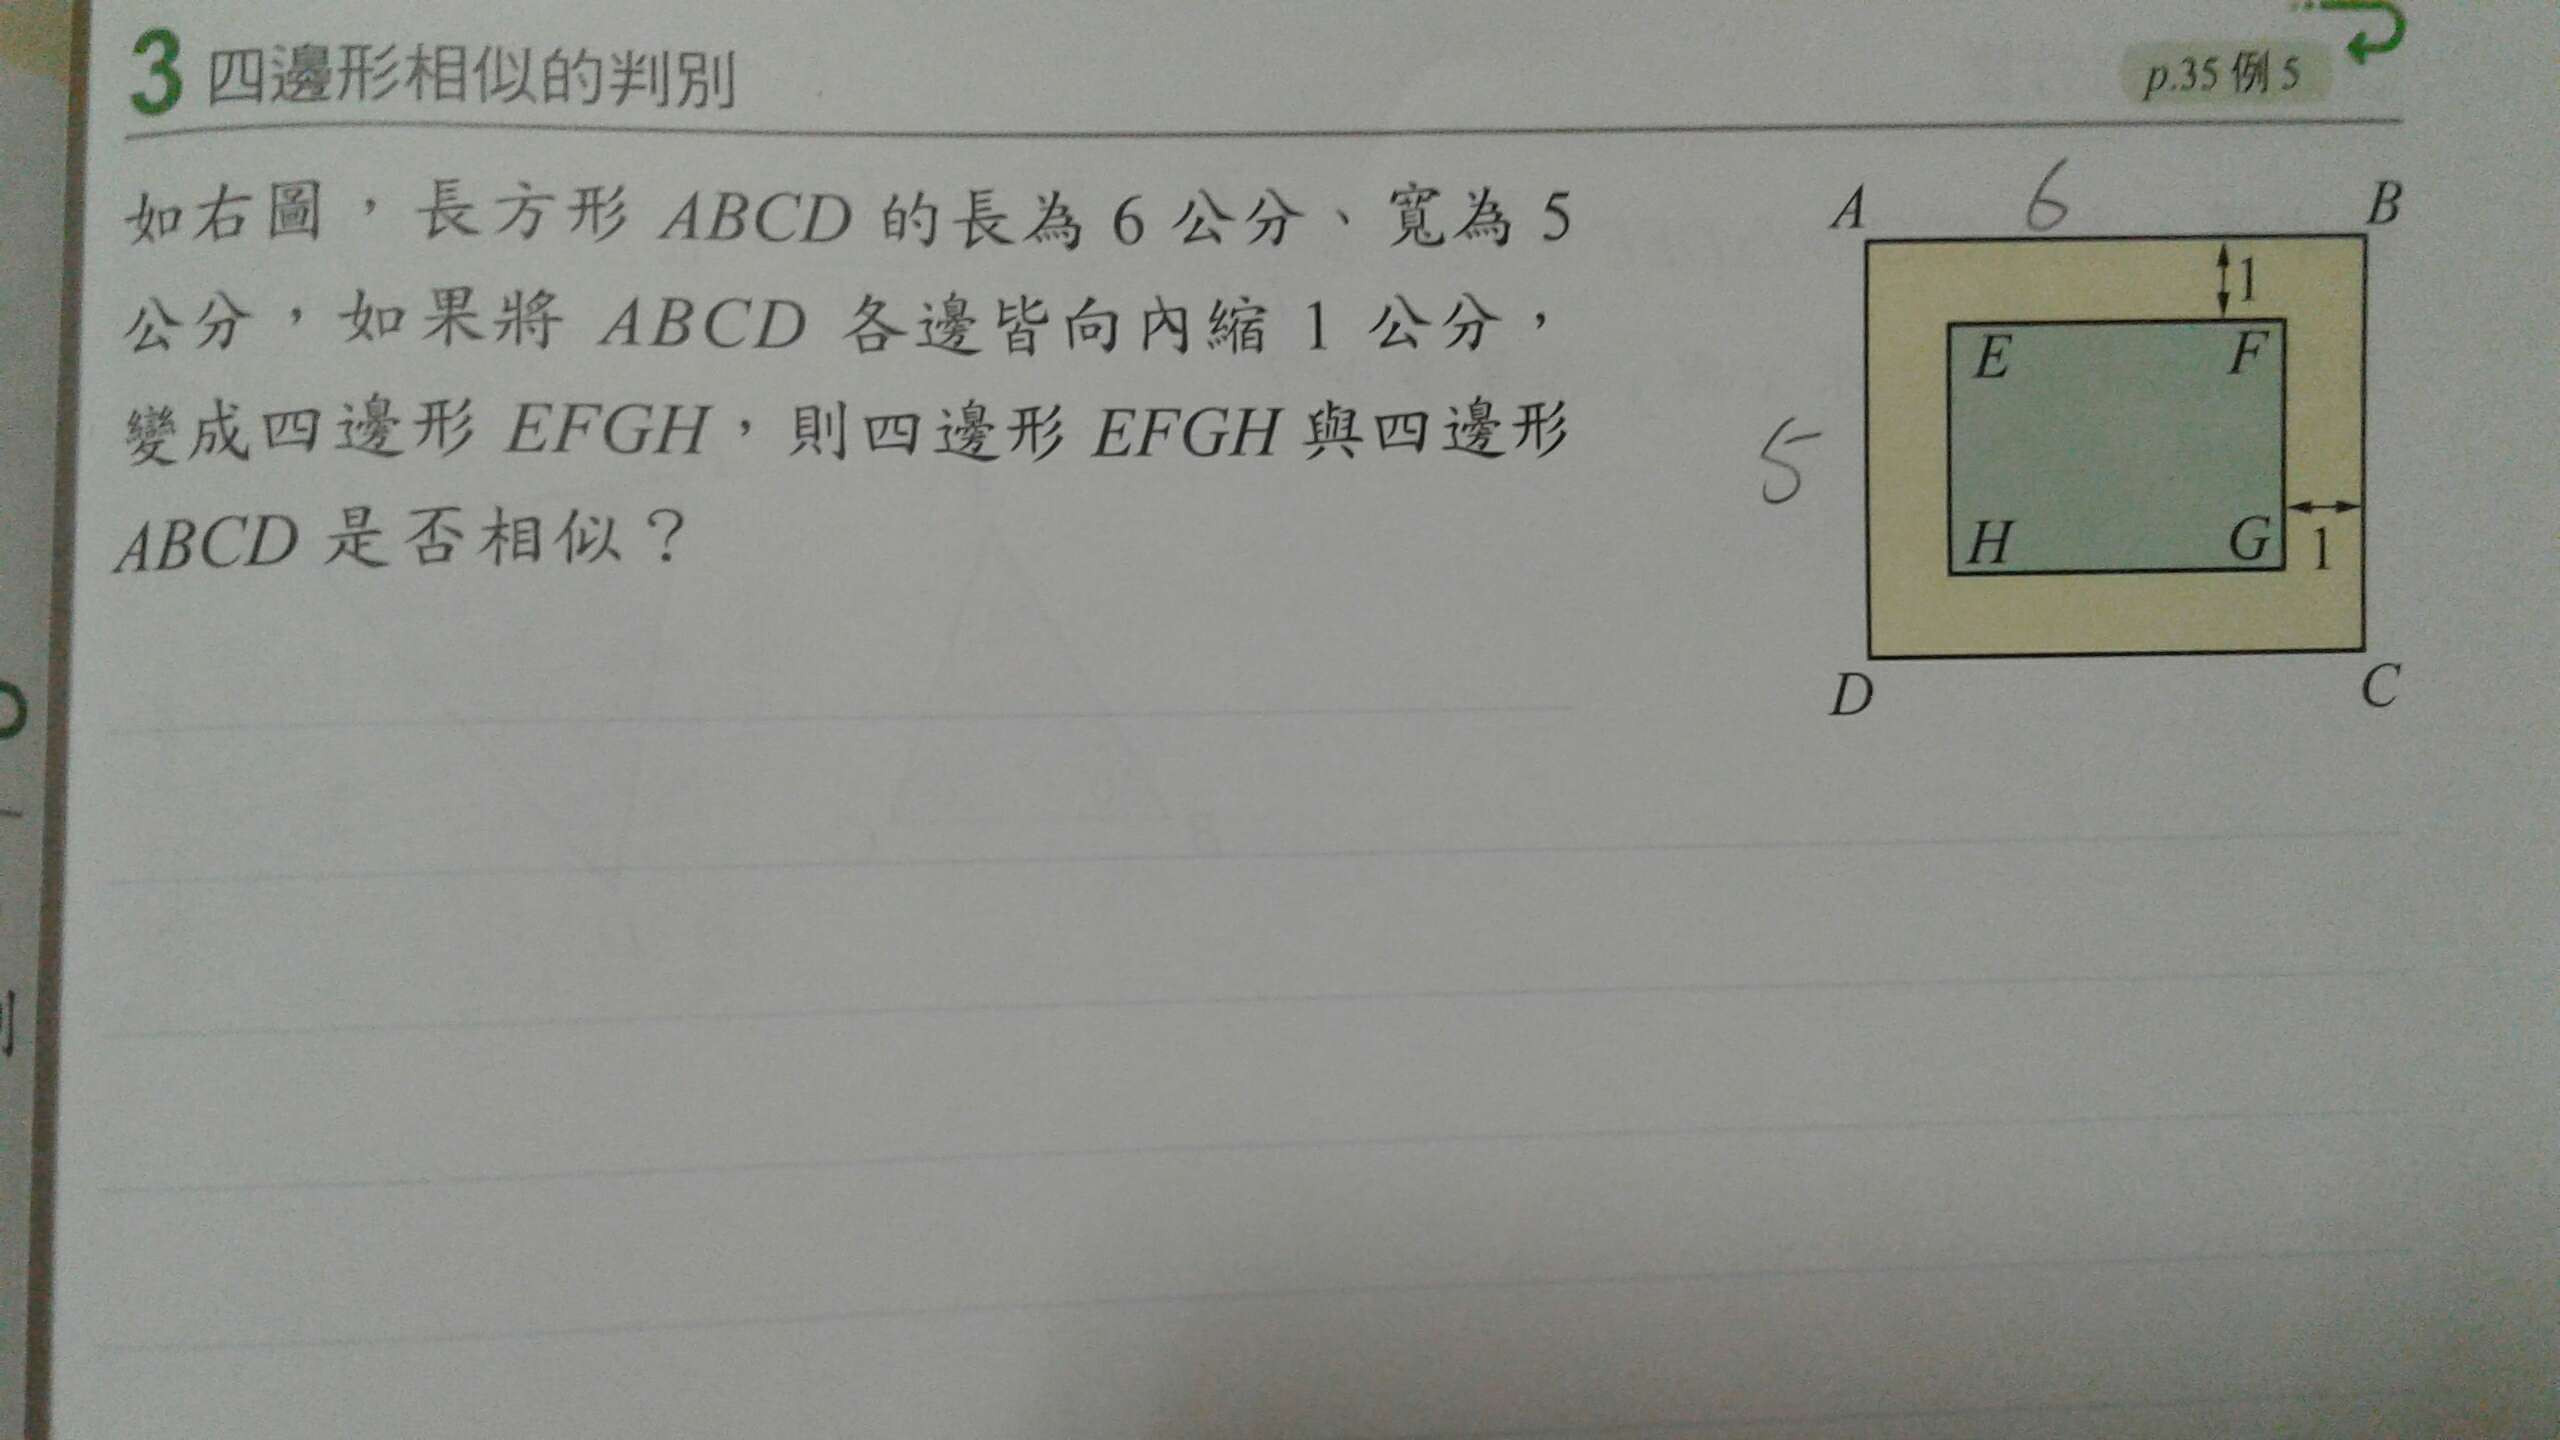 3 四邊形相似的判別
p.35 例 5
如右圖，長方形 ABCD 的長為 6 公分、寬為 5
公分，如果將 ABCD 各邊皆向內縮 1 公分，
變成四邊形 EFGH，則四邊形 EFGH 與四邊形
ABCD 是否相似？
A 6 B
1
E F
5
H G 1
D C